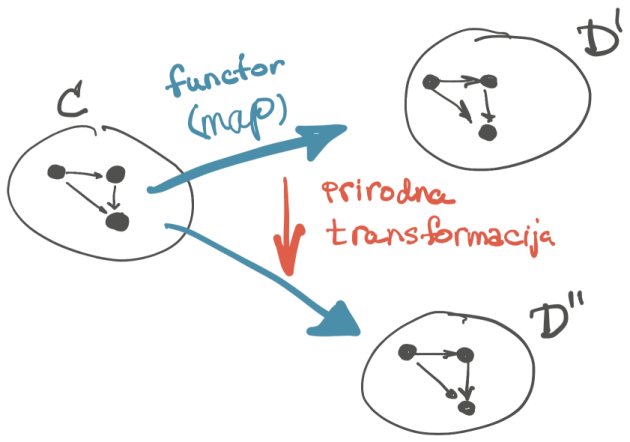 D'
functor
(map)
C
prirodna
transformacija
D"